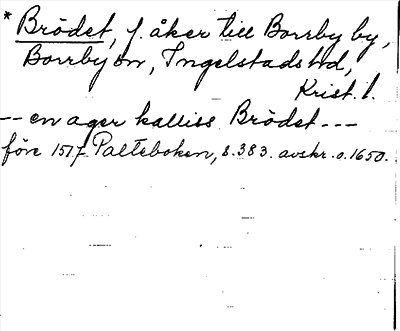 * Brödet, f. åker till Borrby by,
Borrby sn, Ingelstads hd,
Krist. l.
-- en ager kalliss Brödet ---
före 1517 Palteboken, s. 383. avskr. o. 1650.